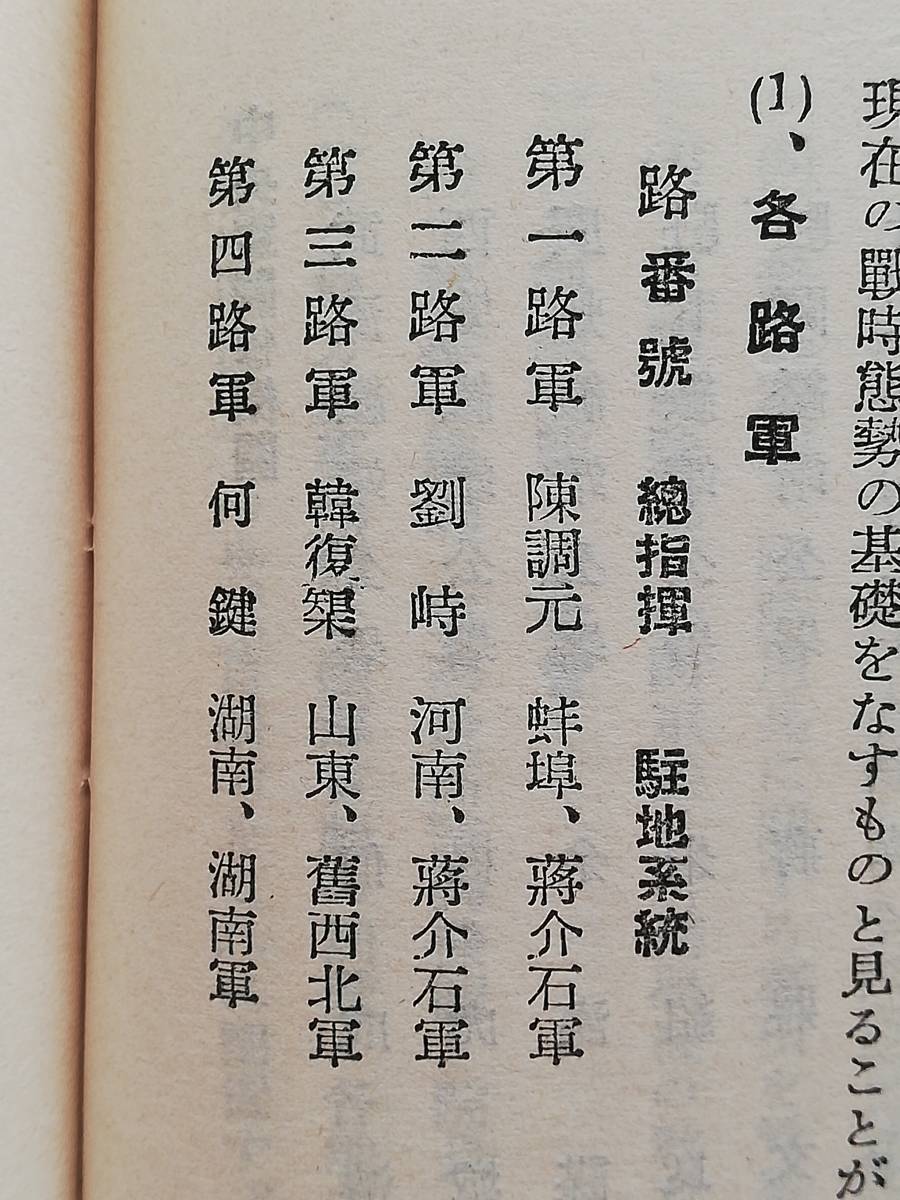 現在の戰時態勢の基礎をなすものと見ることが
(1)、各路軍
路番號 總指揮 駐地系統
第一路軍 陳調元 蚌埠、蔣介石軍
第二路軍 劉峙 河南、蔣介石軍
第三路軍 韓復榘 山東、舊西北軍
第四路軍 何鍵 湖南、湖南軍